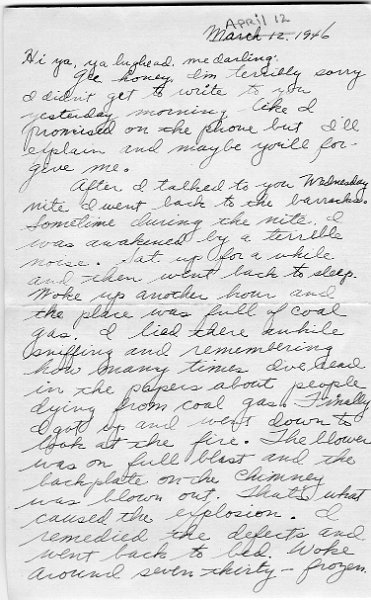 April 12
March 12, 1946
Hi ya, ya lughead, me darling:
Gee honey, I'm terribly sorry
I didn't get to write to you
yesterday morning like I
promised on the phone but I'll
explain and maybe you'll for-
give me.
After I talked to you Wednesday
nite I went back to the barracks.
Sometime during the nite, I
was awakened by a terrible
noise. Sat up for a while
and then went back to sleep.
Woke up another hour and
the place was full of coal
gas. I lied there awhile
sniffing and remembering
how many times I've read
in the papers about people
dying from coal gas. Finally
I got up and went down to
look at the fire. The blower
was on full blast and the
back plate on the chimney
was blown out. That's what
caused the explosion. I
remedied the defects and
went back to bed. Woke
around seven thirty - frozen.